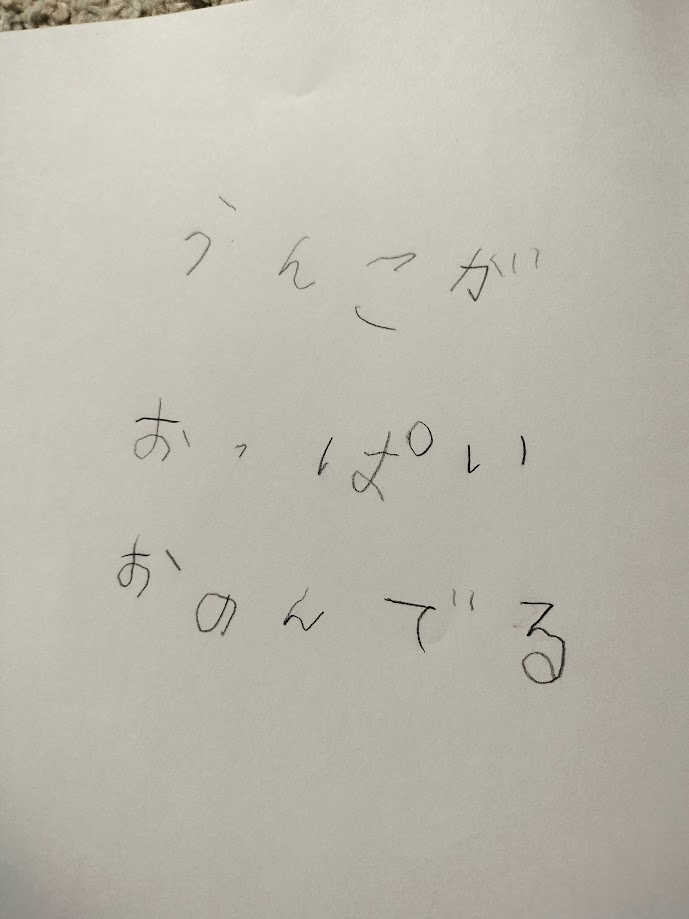 うんこが
おっぱい
おのんでる